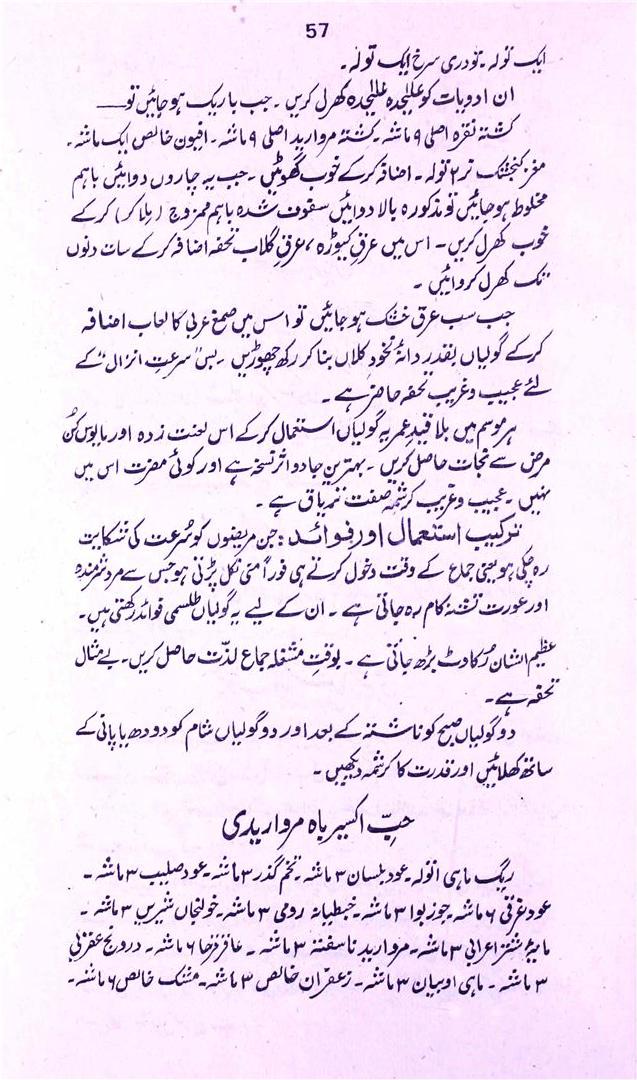 57
ایک تولہ۔ تودری سرخ ایک تولہ۔
ان ادویات کو علیٰحدہ علیٰحدہ کھرل کریں۔ جب باریک ہو جائیں تو
کشتہ نقرہ اصلی ۹ ماشہ۔ کشتہ مروارید اصلی ۹ ماشہ۔ افیون خالص ایک ماشہ۔
مغز کنجشک نر ۲ تولہ۔ اضافہ کر کے خوب گھوٹیں۔ جب یہ چاروں دوائیں باہم
مخلوط ہو جائیں تو مذکورہ بالا دوائیں سفوف شدہ باہم ممزوج (ملا کر) کر کے
خوب کھرل کریں۔ اس میں عرق کیوڑہ، عرق گلاب تحفہ اضافہ کر کے سات دنوں
تک کھرل کروائیں۔
جب سب عرق خشک ہو جائیں تو اس میں صمغ عربی کا لعاب اضافہ
کر کے گولیاں بقدر دانۂ نخود کلاں بنا کر رکھ چھوڑیں۔ بس "سرعتِ انزال" کے
لئے عجیب و غریب تحفہ حاضر ہے۔
ہر موسم میں بلا قید عمر یہ گولیاں استعمال کر کے اس لعنت زدہ اور مایوس کُن
مرض سے نجات حاصل کریں۔ بہترین جادو اثر نسخہ ہے اور کوئی مضرت اس میں
نہیں۔ عجیب و غریب کرشمہ صفت تریاق ہے۔
ترکیب استعمال اور فوائد: جن مریضوں کو سُرعت کی شکایت
رہ چکی ہو یعنی جماع کے وقت دخول کرتے ہی فوراً منی نکل پڑتی ہو جس سے مرد شرمندہ
اور عورت تشنہ کام رہ جاتی ہے۔ ان کے لیے یہ گولیاں طلسمی فوائد رکھتی ہیں۔
عظیم الشان رُکاوٹ بڑھ جاتی ہے۔ بوقتِ مشغلہ جماع لذّت حاصل کریں۔ بے مثال
تحفہ ہے۔
دو گولیاں صبح کو ناشتہ کے بعد اور دو گولیاں شام کو دودھ یا پانی کے
ساتھ کھلائیں اور قدرت کا کرشمہ دیکھیں۔
حبِّ اکسیر باہ مرواریدی
ریگ ماہی ۱ تولہ۔ عود بلسان ۳ ماشہ۔ تخم گذر ۳ ماشہ۔ عود صلیب ۳ ماشہ۔
عود غرقی ۶ ماشہ۔ جوز بوا ۳ ماشہ۔ خبطیانہ رومی ۳ ماشہ۔ خولنجاں شیریں ۳ ماشہ۔
مایۂ شتر اعرابی ۳ ماشہ۔ مروارید ناسفتہ ۳ ماشہ۔ عاقرقرحا ۶ ماشہ۔ درونج عقربی
۳ ماشہ۔ ماہی اوبیان ۳ ماشہ۔ زعفران خالص ۳ ماشہ۔ مشک خالص ۶ ماشہ۔